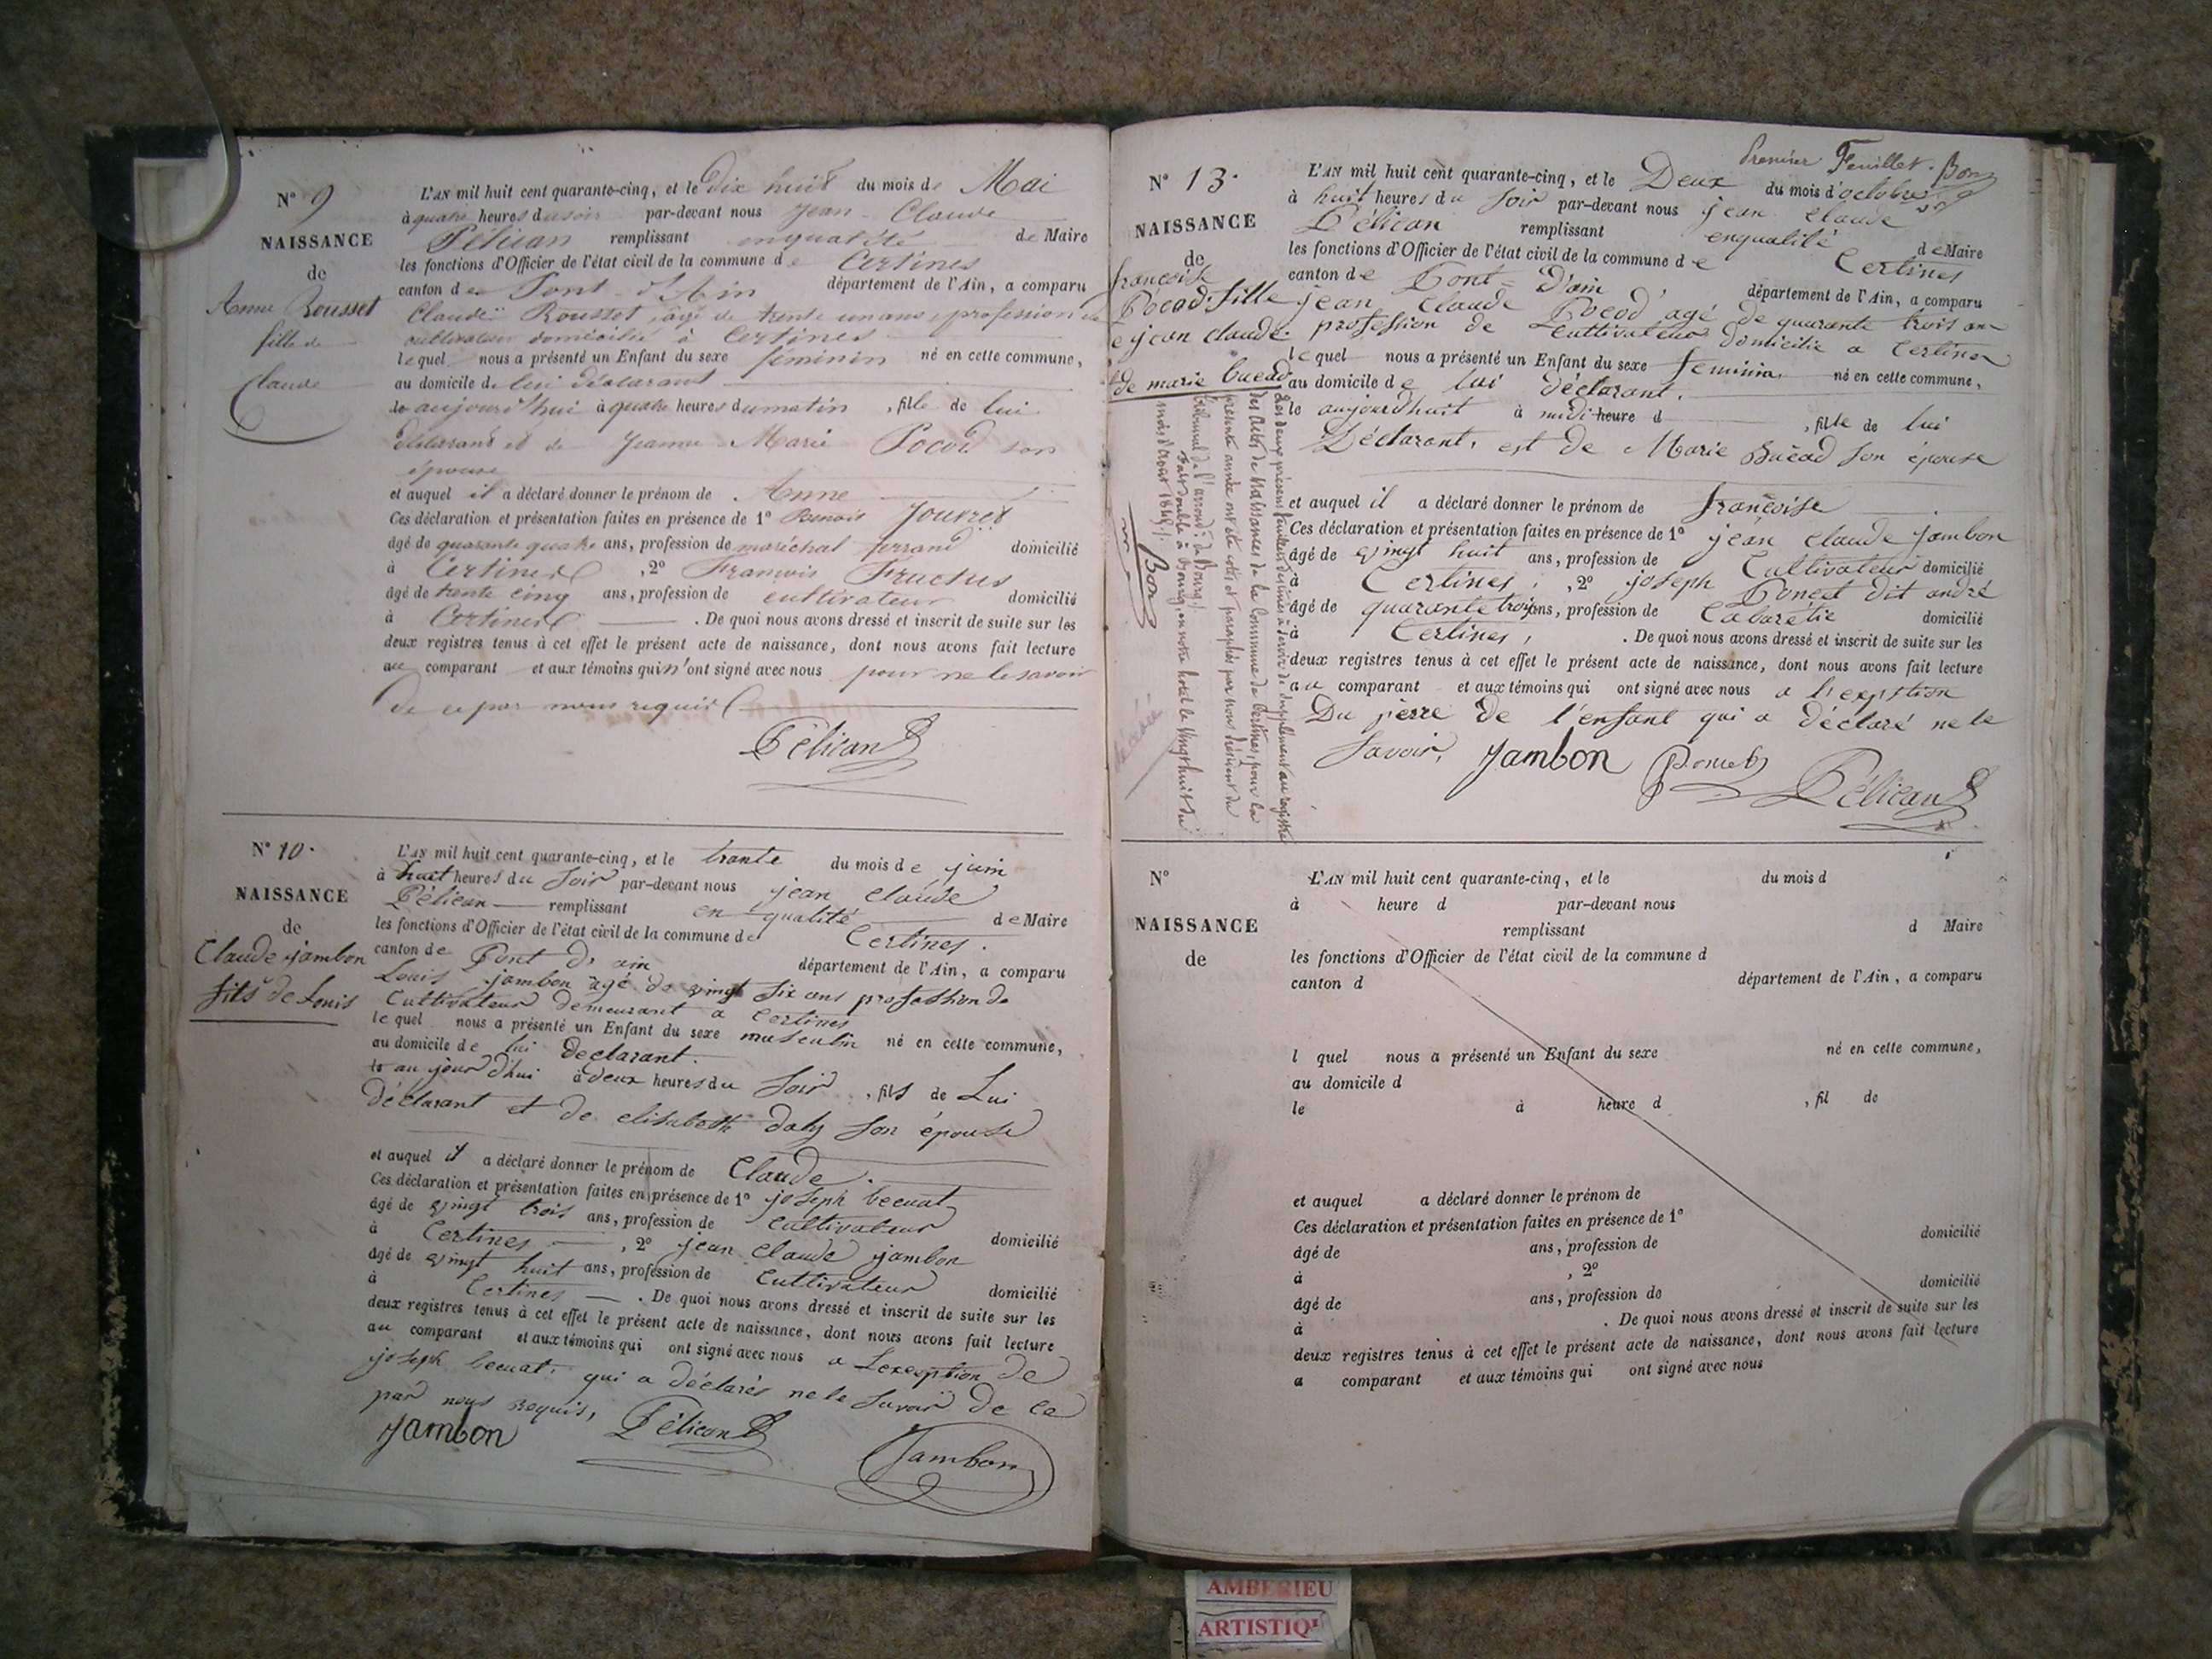 N° 9
NAISSANCE
de
Anne Rousset
fille de
Claude
L'AN mil huit cent quarante-cinq, et le Dix huit du mois de Mai
à quatre heures du soir par-devant nous Jean - Claude
Pélican remplissant enqualité de Maire
les fonctions d'Officier de l'état civil de la commune de Certines
canton de Pont - d'Ain département de l'Ain, a comparu
Claude Rousset, agé de trente un ans, profession de
cultivateur domicilié à Certines
lequel nous a présenté un Enfant du sexe féminin né en cette commune,
au domicile de lui déclarant
le aujourd'hui à quatre heures du matin, fille de lui
déclarant et de Jeanne - Marie Pocod son
épouse
et auquel il a déclaré donner le prénom de Anne
Ces déclaration et présentation faites en présence de 1° Benoit Jouvret
âgé de quarante quatre ans, profession de maréchal ferrand domicilié
à Certines, 2° François Fructus
âgé de trente cinq ans, profession de cultivateur domicilié
à Certines. De quoi nous avons dressé et inscrit de suite sur les
deux registres tenus à cet effet le présent acte de naissance, dont nous avons fait lecture
au comparant et aux témoins qui n'ont signé avec nous pour ne le savoir
de ce par nous requis
Pélican
N° 10.
NAISSANCE
de
Claude jambon
fils de Louis
L'AN mil huit cent quarante-cinq, et le trante du mois de juin
à huit heures du Soir par-devant nous jean claude
Pélican remplissant en qualité de Maire
les fonctions d'Officier de l'état civil de la commune de Certines.
canton de Pont d'ain département de l'Ain, a comparu
Louis jambon âgé de vingt six ans profession de
Cultivateur demeurant a Certines
le quel nous a présenté un Enfant du sexe masculin né en cette commune,
au domicile de lui declarant.
le aujourd'hui à deux heures du Soir, fils de Lui
déclarant et de elisabeth daly son épouse
et auquel il a déclaré donner le prénom de Claude.
Ces déclaration et présentation faites en présence de 1° joseph becuat
âgé de vingt trois ans, profession de Cultivateur
à Certines, 2° jean claude jambon domicilié
âgé de vingt huit ans, profession de Cultivateur
à Certines. De quoi nous avons dressé et inscrit de suite sur les domicilié
deux registres tenus à cet effet le présent acte de naissance, dont nous avons fait lecture
au comparant et aux témoins qui ont signé avec nous a Lexception de
joseph becuat. qui a déclarés ne le savoir de ce
par nous requis,
Jambon Pélican Jambon
Premier Feuillet. Bon
N° 13.
NAISSANCE
de
françoise
Pocod. fille
e jean claude.
de marie bucad
L'AN mil huit cent quarante-cinq, et le Deux du mois d'octobre
à huit heures du Soir par-devant nous jean claude
Pélican remplissant enqualité de Maire
les fonctions d'Officier de l'état civil de la commune de Certines
canton de Pont = D'ain, département de l'Ain, a comparu
jean claude Pocod agé de quarante trois an
profession de Cultivateur domicilié a Certines
le quel nous a présenté un Enfant du sexe feminin né en cette commune,
au domicile de lui déclarant.
le aujourdhuit à midi heure d, fille de lui
Déclarant, est de Marie Bucad son épouse
et auquel il a déclaré donner le prénom de françoise
Ces déclaration et présentation faites en présence de 1° jean claude jambon
âgé de vingt huit ans, profession de Cultivateur domicilié
à Certines, 2° joseph Poncet dit andré
âgé de quarante trois ans, profession de Cabaretie domicilié
à Certines,. De quoi nous avons dressé et inscrit de suite sur les
deux registres tenus à cet effet le présent acte de naissance, dont nous avons fait lecture
au comparant et aux témoins qui ont signé avec nous a l'exeption
Du perre de l'enfant qui a déclaré ne le
savoir, Jambon Poncet Pélican
Les deux présens feuillets destinés à servir de supplément au registre
des actes de Naissances de la Commune de Certines, pour la
présente année ont été cotés et paraphés par nous Président du
tribunal de l'arrond. de Bourg.
Fait double à Bourg, en notre hotel le Vingt huit du
mois d'Aout 1845.
Bon
N°
NAISSANCE
de
L'AN mil huit cent quarante-cinq, et le du mois d
à heure d par-devant nous
remplissant d Maire
les fonctions d'Officier de l'état civil de la commune d
canton d département de l'Ain, a comparu
l quel nous a présenté un Enfant du sexe né en cette commune,
au domicile d
le à heure d, fil de
et auquel a déclaré donner le prénom de
Ces déclaration et présentation faites en présence de 1°
âgé de ans, profession de domicilié
à, 2°
âgé de ans, profession de domicilié
à. De quoi nous avons dressé et inscrit de suite sur les
deux registres tenus à cet effet le présent acte de naissance, dont nous avons fait lecture
a comparant et aux témoins qui ont signé avec nous
AMBERIEU
ARTISTIQU